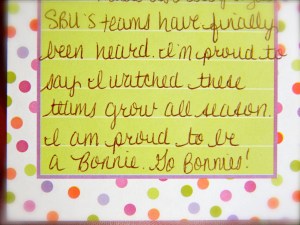 SBU's teams have finally
been heard. I'm proud to
say I watched these
teams grow all season.
I am proud to be
a Bonnie. Go Bonnies!